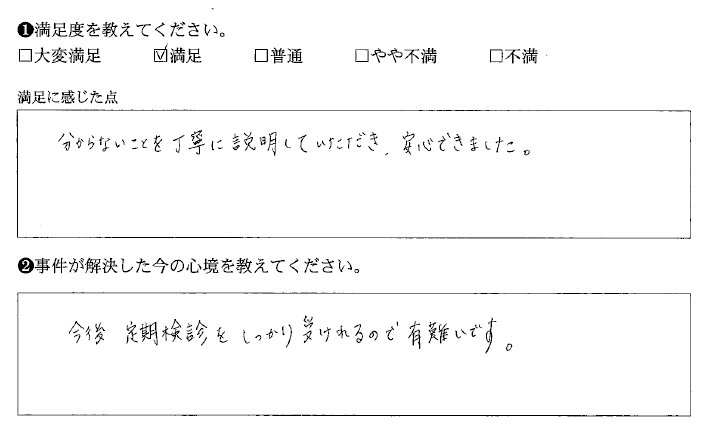 ❶満足度を教えてください。
□大変満足 ☑満足 □普通 □やや不満 □不満
満足に感じた点
分からないことを丁寧に説明していただき、安心できました。
❷事件が解決した今の心境を教えてください。
今後 定期検診を しっかり受けれるので有難いです。